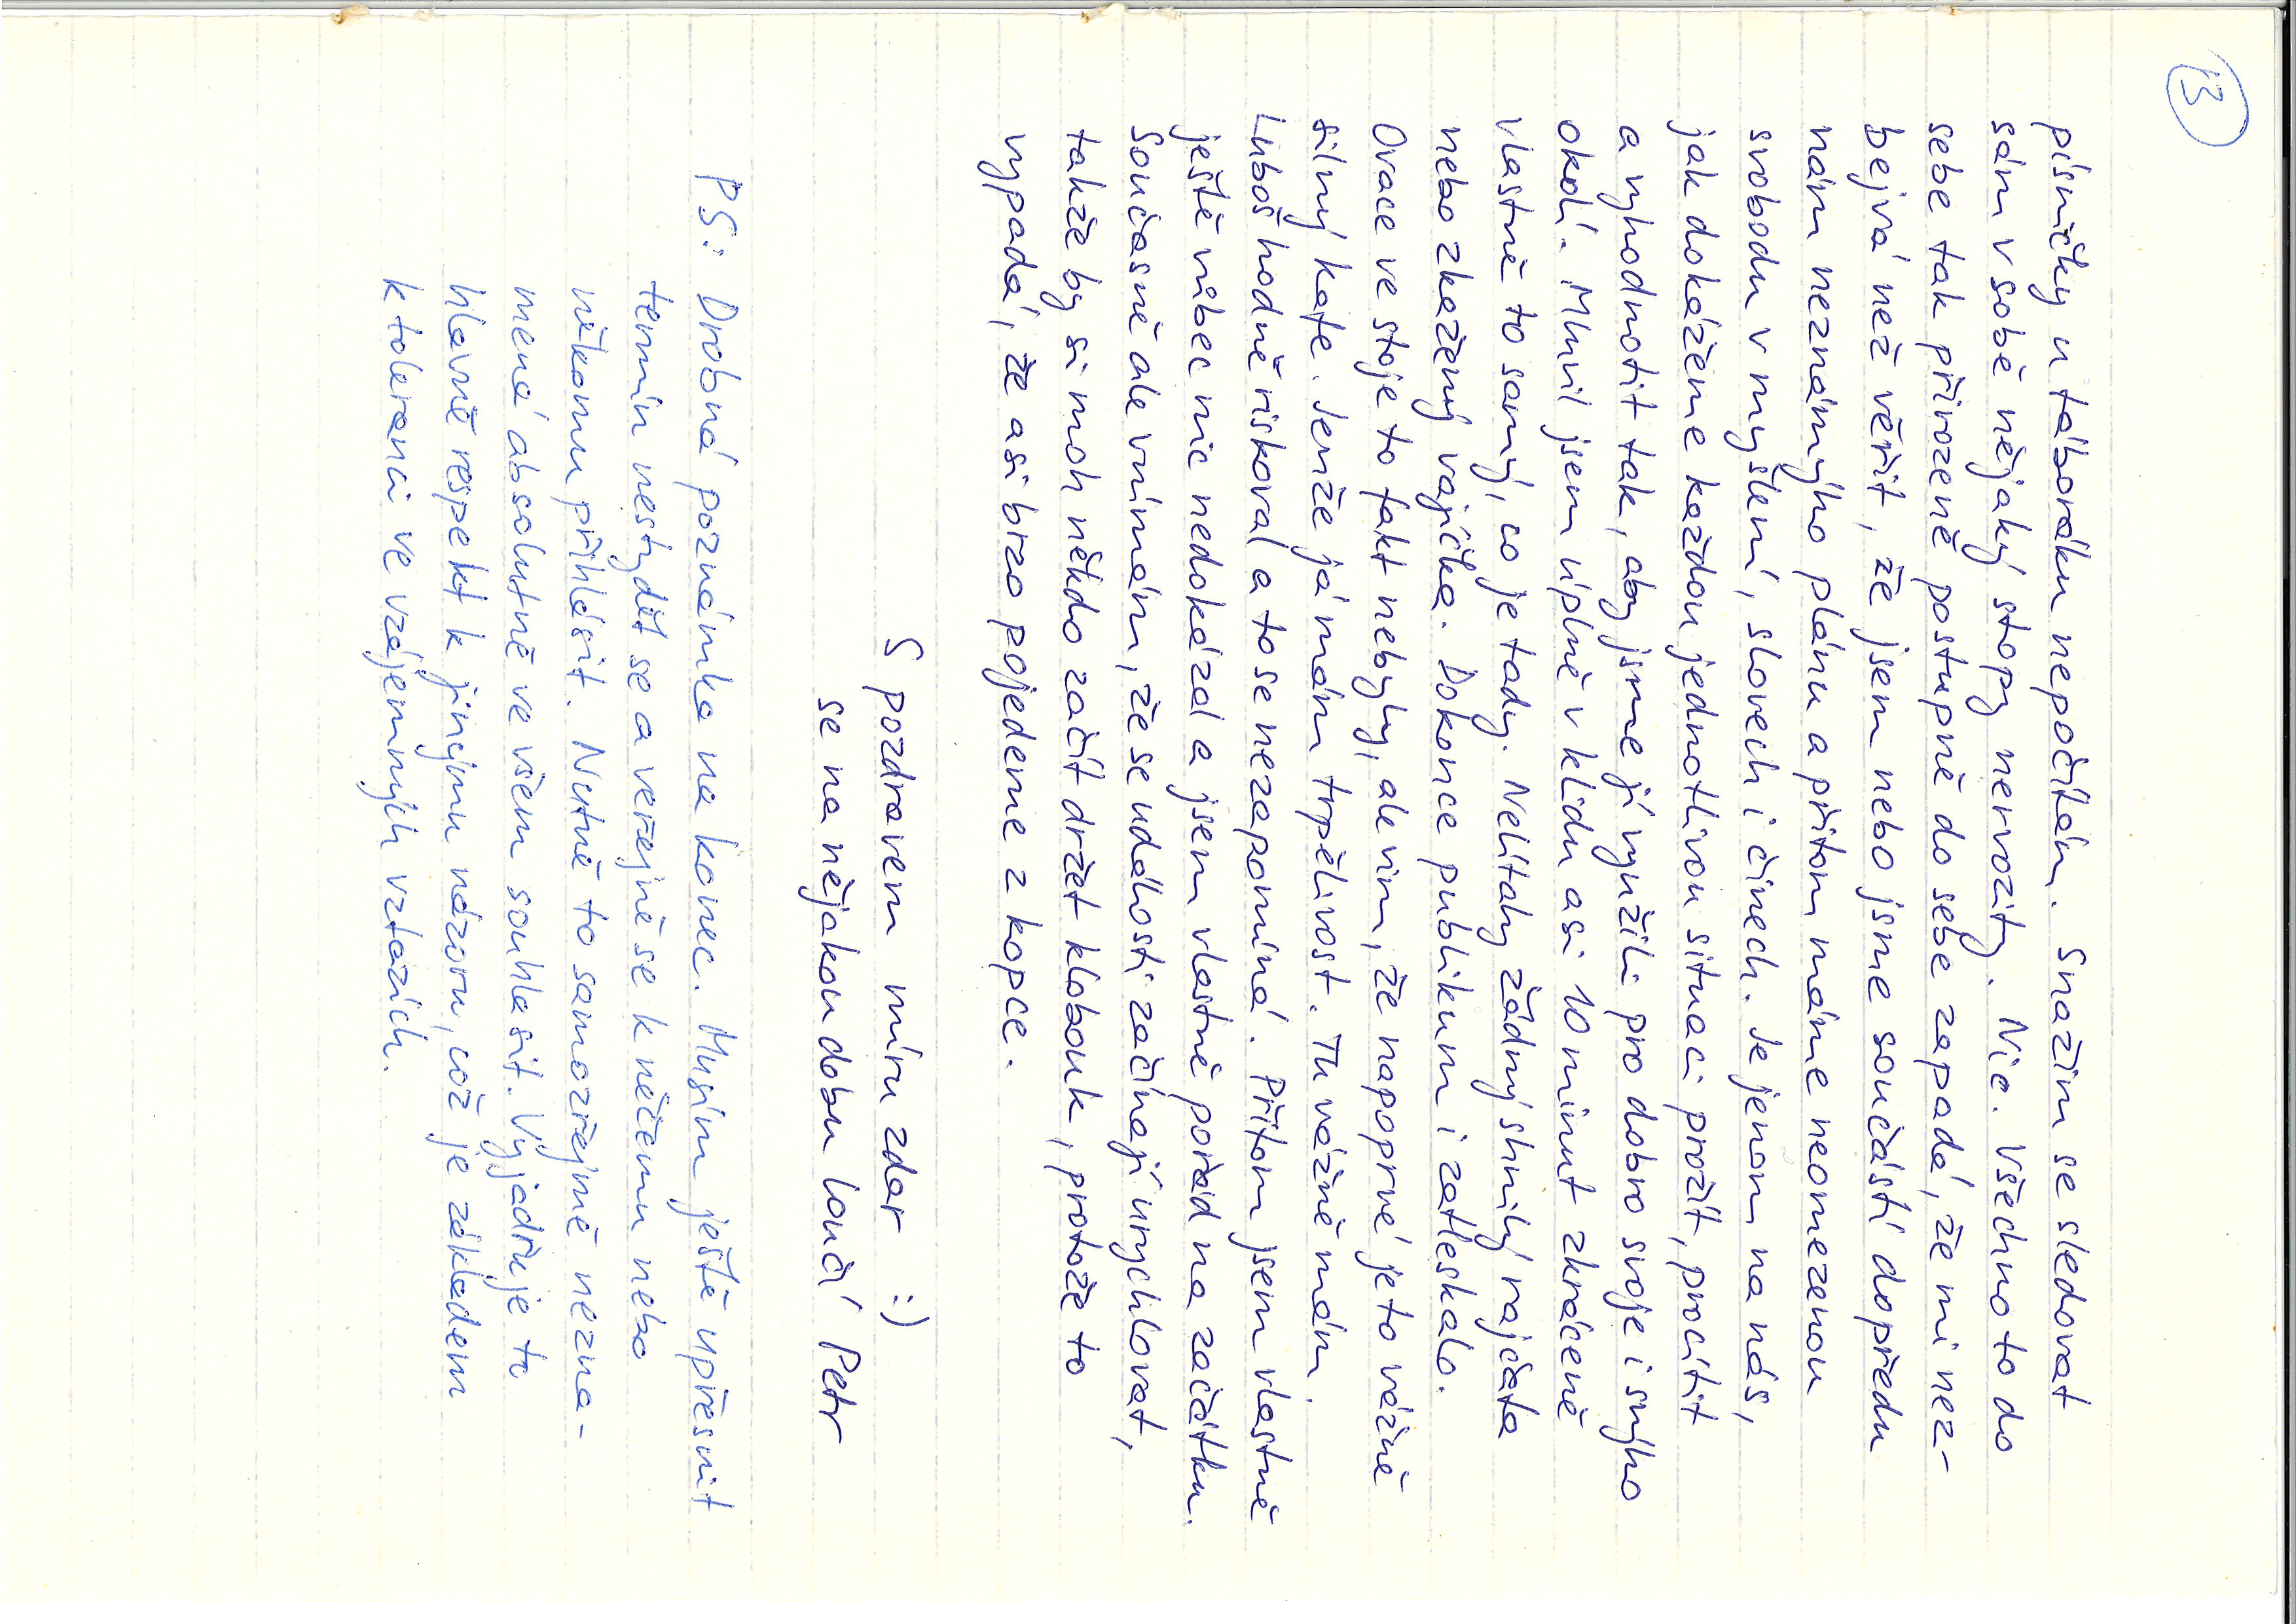 13
písničky u táboráku nepočítám. Snažím se sledovat
sám v sobě nějaký stopy nervozity. Nic. Všechno to do
sebe tak přirozeně postupně do sebe zapadá, že mi nez-
bejvá než věřit, že jsem nebo jsme součástí dopředu
nám neznámýho plánu a přitom máme neomezenou
svobodu v myšlení, slovech i činech. Je jenom na nás,
jak dokážeme každou jednotlivou situaci prožít, procítit
a vyhodnotit tak, aby jsme jí využili pro dobro svoje i svýho
okolí. Mluvil jsem úplně v klidu asi 10 minut zkráceně
vlastně to samý, co je tady. Nelítaly žádný shnilý rajčata
nebo zkažený vajíčka. Dokonce publikum i zatleskalo.
Ovace ve stoje to fakt nebyly, ale vim, že napoprvé je to vážně
silný kafe. Jenže já mám trpělivost. Tu vážně mám.
Luboš hodně riskoval a to se nezapomíná. Přitom jsem vlastně
ještě vůbec nic nedokázal a jsem vlastně pořád na začátku.
Současně ale vnímám, že se události začínají urychlovat,
takže by si moh někdo začít držet klobouk, protože to
vypadá, že asi brzo pojedeme z kopce.
S pozdravem míru zdar :)
se na nějakou dobu loučí Petr
PS: Drobná poznámka na konec. Musím ještě upřesnit
termín nestydět se a veřejně se k něčemu nebo
někomu přihlásit. Nutně to samozřejmě nezna-
mená absolutně ve všem souhlasit. Vyjadřuje to
hlavně respekt k jinýmu názoru, což je základem
k toleranci ve vzájemných vztazích.